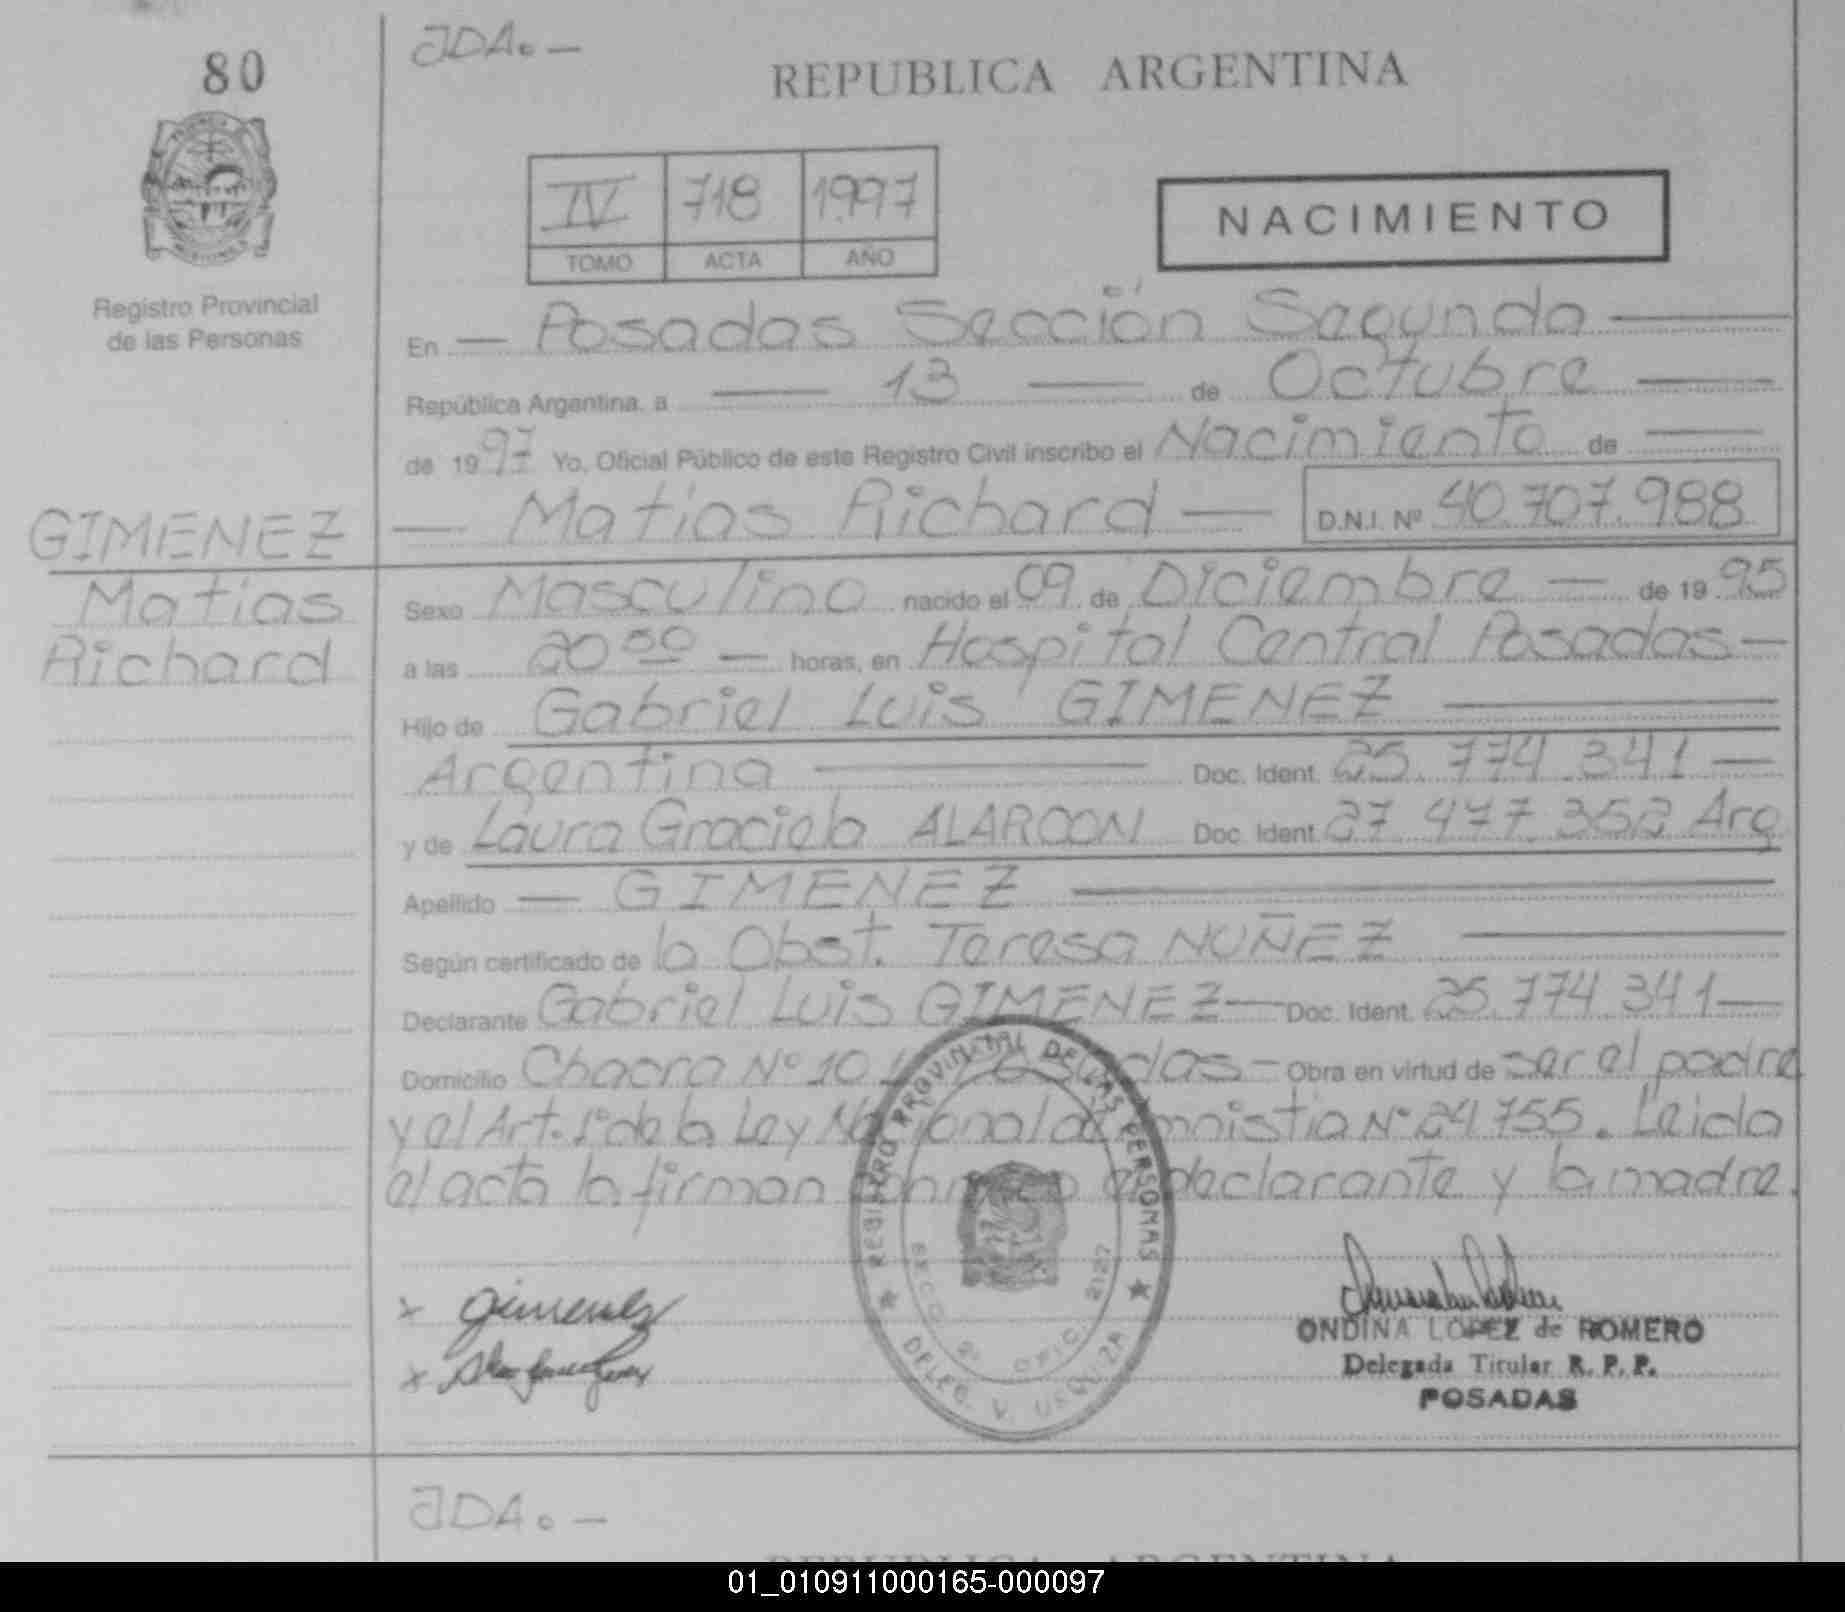 80
JDA. —
REPUBLICA ARGENTINA
IV 718 1997
TOMO ACTA AÑO
NACIMIENTO
Registro Provincial
de las Personas
En — Posadas Sección Segunda —
República Argentina, a — 13 — de Octubre —
de 1997 Yo, Oficial Público de este Registro Civil inscribo el Nacimiento de —
— Matias Richard — D.N.I. Nº 40.707.988
GIMENEZ
Matias
Richard
Sexo Masculino nacido el 09 de Diciembre — de 1995
a las 20 50 — horas, en Hospital Central Posadas —
Hijo de Gabriel Luis GIMENEZ —
Argentina — Doc. Ident. 25.774.341 —
y de Laura Graciela ALARCON Doc. Ident. 27.477.352 Arg
Apellido — GIMENEZ —
Según certificado de la Obst. Teresa NUÑEZ —
Declarante Gabriel Luis GIMENEZ — Doc. Ident. 25.774.341 —
Domicilio Chacra Nº 10 Posadas — Obra en virtud de ser el padre
y el Art. 1º de la Ley Nacional de Amnistia Nº 24.755. Leida
el acta la firman conmigo el declarante y la madre.
REGISTRO PROVINCIAL DE LAS PERSONAS
SECC. 2º OFIC. 2127
DELEG. V. URQUIZA
x Gimenez
x
ONDINA LOPEZ de ROMERO
Delegada Titular R. P. P.
POSADAS
JDA. —
REPUBLICA ARGENTINA
01_010911000165-000097